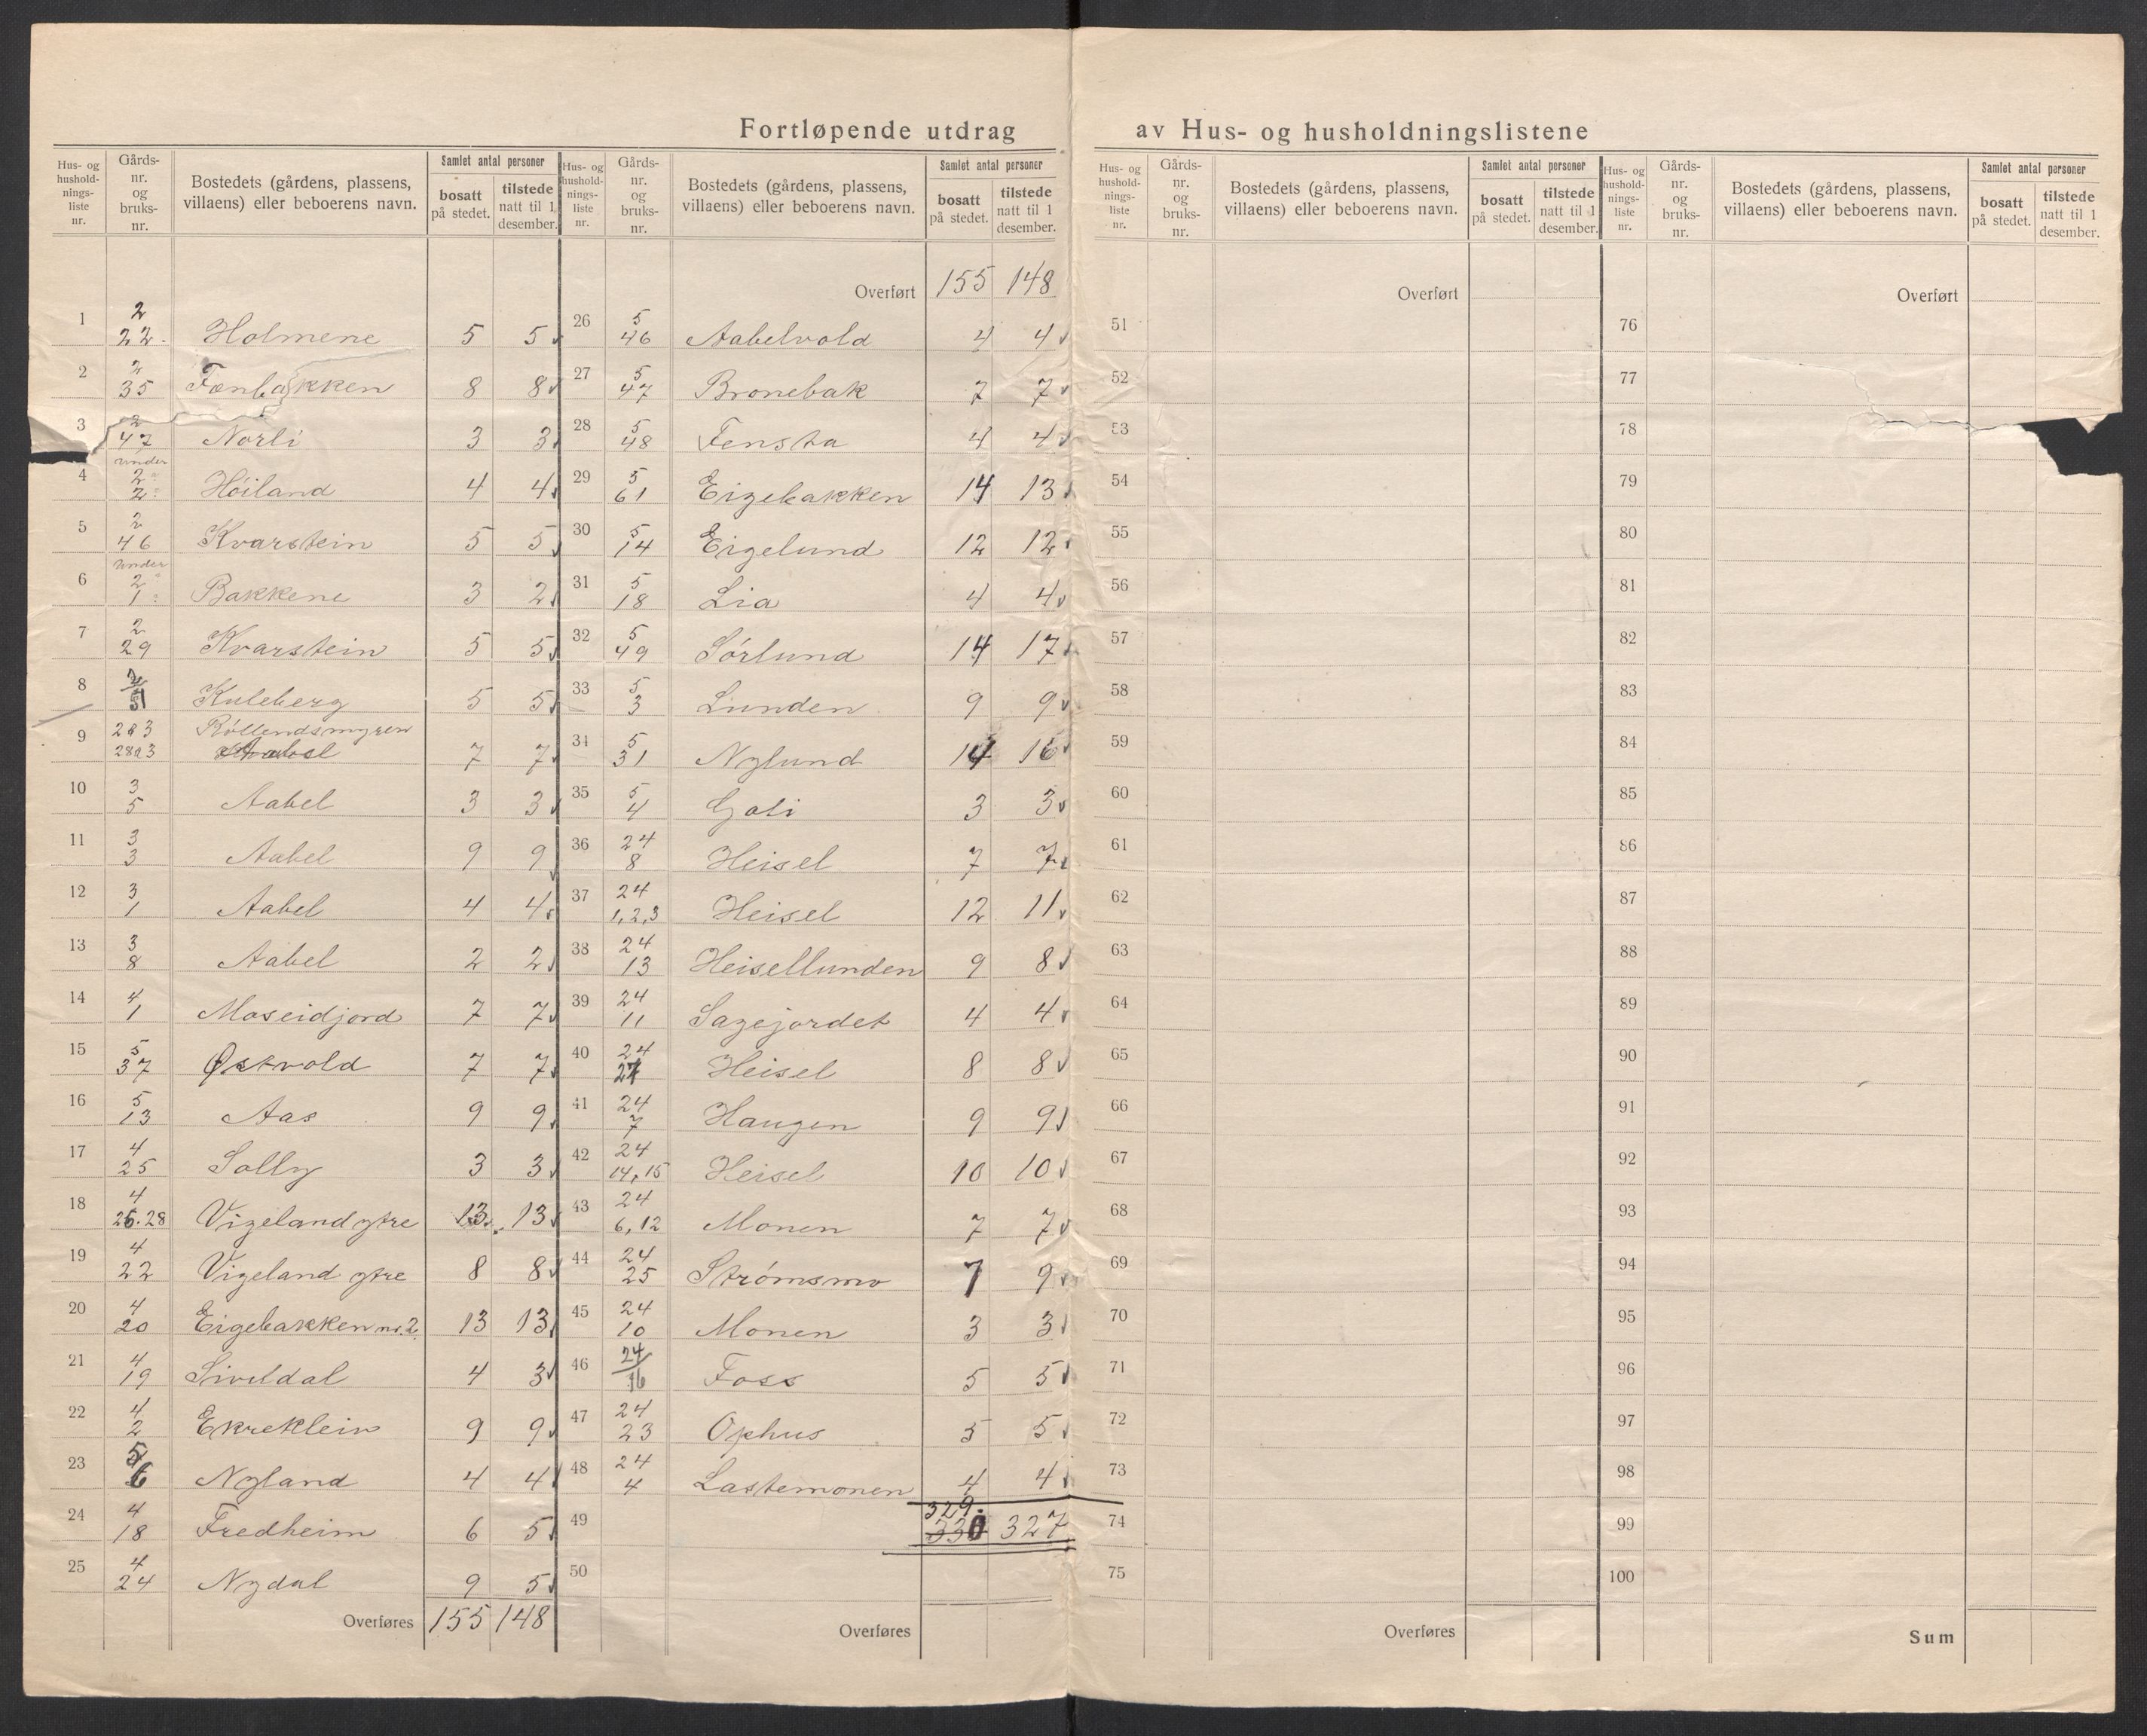 Fortløpende utdrag av Hus- og husholdningslistene
Hus- og hushold-nings-liste nr. Gårds-nr. og bruks-nr. Bostedets (gårdens, plassens, villaens) eller beboerens navn. Samlet antal personer bosatt på stedet. tilstede natt til 1 desember.
1 2 22. Holmene 5 5
2 2 35 Fænbakken 8 8
3 2 47 Norli 3 3
4 under 2 2 Høiland 4 4
5 2 46 Kvarstein 5 5
6 under 2 1 Bakkene 3 2
7 2 29 Kvarstein 5 5
8 2/51 Kuleberg 5 5
9 2&3 28&3 Røllendsmyren Aabel 7 7
10 3 5 Aabel 3 3
11 3 3 Aabel 9 9
12 3 1 Aabel 4 4
13 3 8 Aabel 2 2
14 4 1 Moseidjord 7 7
15 5 37 Østvold 7 7
16 5 13 Aas 9 9
17 4 25 Solly 3 3
18 4 26.28 Vigeland ytre 13 13
19 4 22 Vigeland ytre 8 8
20 4 20 Eigebakken nr. 2 13 13
21 4 19 Siveldal 4 3
22 4 2 Ekreklein 9 9
23 5 6 Nyland 4 4
24 4 18 Fredheim 6 5
25 4 24 Nydal 9 5
Overføres 155 148
Hus- og hushold-nings-liste nr. Gårds-nr. og bruks-nr. Bostedets (gårdens, plassens, villaens) eller beboerens navn. Samlet antal personer bosatt på stedet. tilstede natt til 1 desember.
Overført 155 148
26 5 46 Aabelvold 4 4
27 5 47 Bronebak 7 7
28 5 48 Fensta 4 4
29 5 61 Eigebakken 14 13
30 5 14 Eigelund 12 12
31 5 18 Lia 4 4
32 5 49 Sørlund 14 17
33 5 3 Lunden 9 9
34 5 31 Nylund 14 16
35 5 4 Goli 3 3
36 24 8 Heisel 7 7
37 24 1,2,3 Heisel 12 11
38 24 13 Heisellunden 9 8
39 24 11 Sagejordet 4 4
40 24 27 Heisel 8 8
41 24 7 Haugen 9 9
42 24 14,15 Heisel 10 10
43 24 6,12 Monen 7 7
44 24 25 Strømsmo 7 9
45 24 10 Monen 3 3
46 24/16 Foss 5 5
47 24 23 Ophus 5 5
48 24 4 Lastemonen 4 4
49 329. 330 327
50
Overføres
Hus- og hushold-nings-liste nr. Gårds-nr. og bruks-nr. Bostedets (gårdens, plassens, villaens) eller beboerens navn. Samlet antal personer bosatt på stedet. tilstede natt til 1 desember.
Overført
51
52
53
54
55
56
57
58
59
60
61
62
63
64
65
66
67
68
69
70
71
72
73
74
75
Overføres
Hus- og hushold-nings-liste nr. Gårds-nr. og bruks-nr. Bostedets (gårdens, plassens, villaens) eller beboerens navn. Samlet antal personer bosatt på stedet. tilstede natt til 1 desember.
Overført
76
77
78
79
80
81
82
83
84
85
86
87
88
89
90
91
92
93
94
95
96
97
98
99
100
Sum